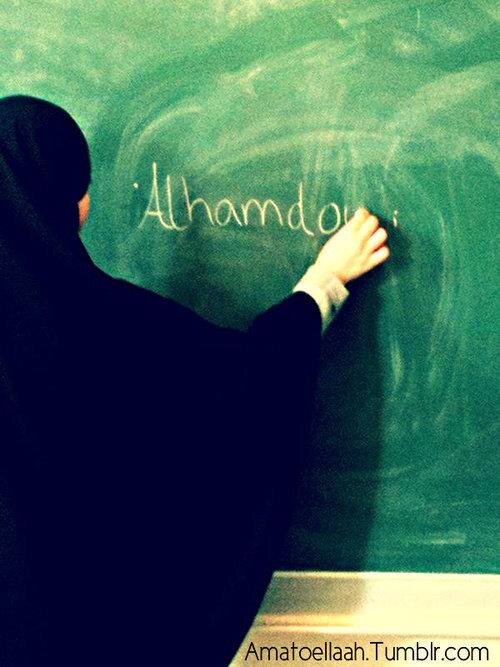 Alhamdou
Amatoellaah.Tumblr.com